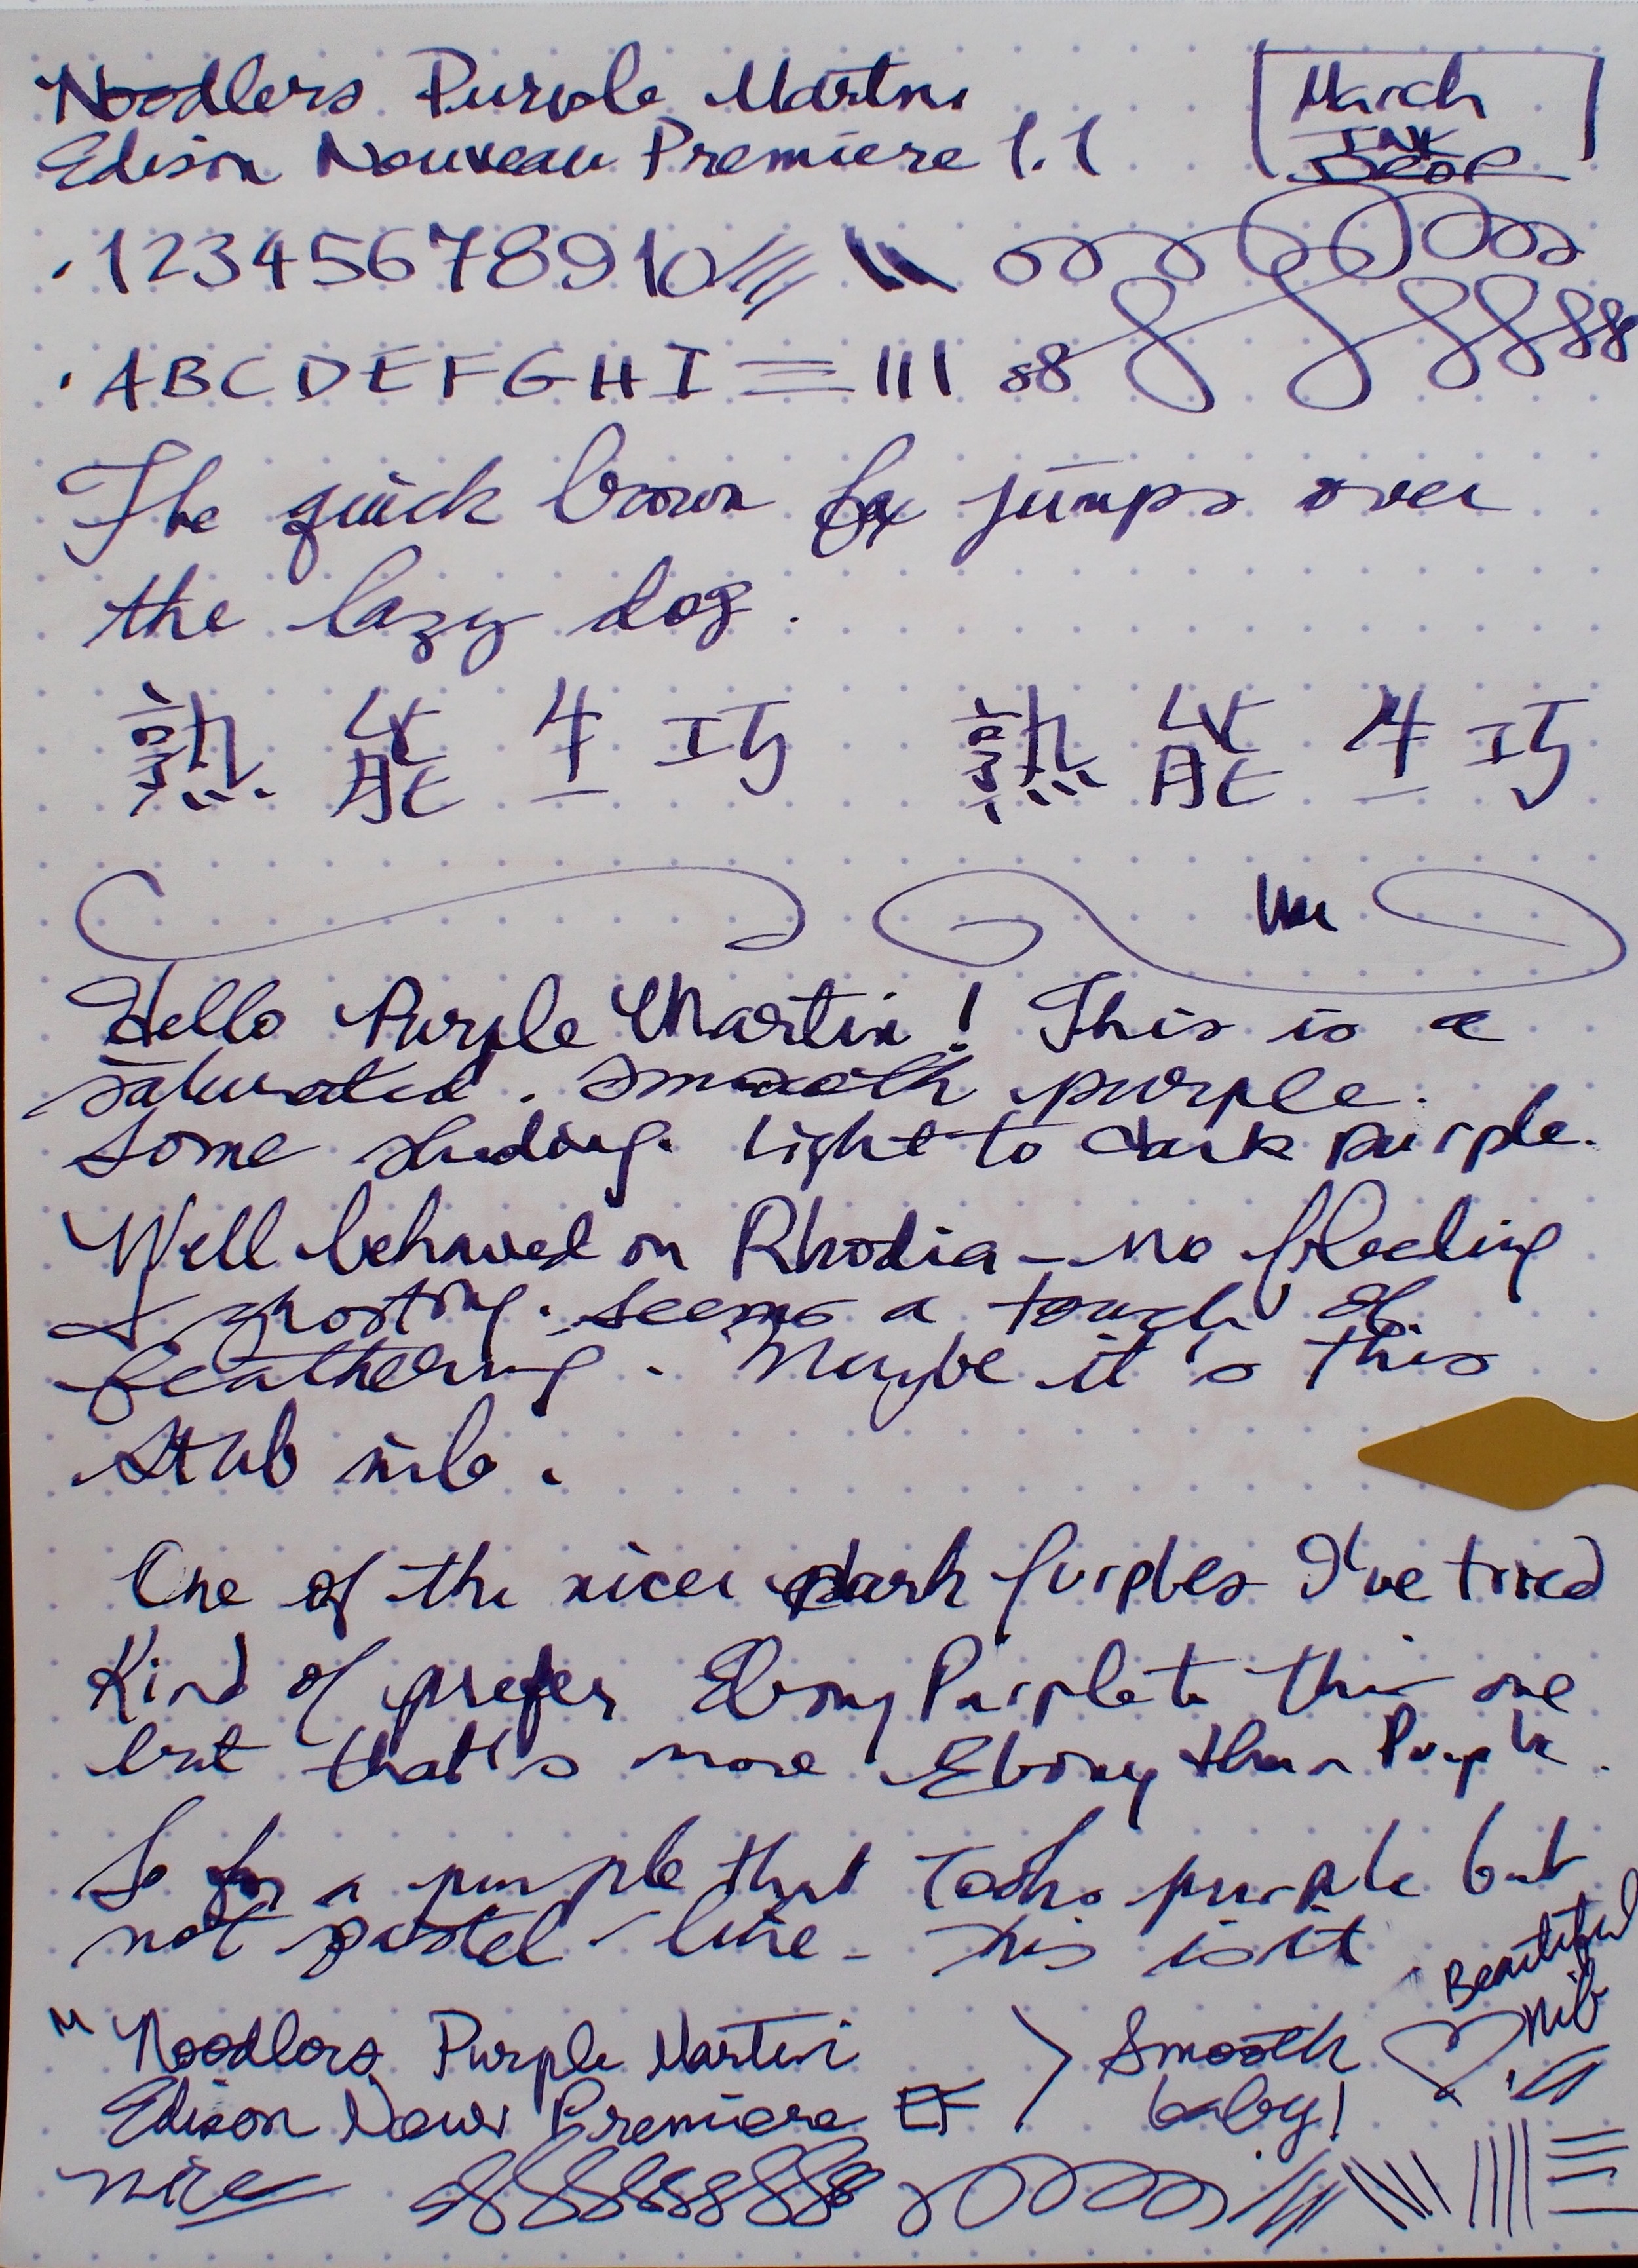 Noodlers Purple Martin
Edison Nouveau Premiere 1.1
March
INK
DROP
1 2 3 4 5 6 7 8 9 10
A B C D E F G H I
The quick brown fox jumps over
the lazy dog.
熟能生巧 熟能生巧
Hello Purple Martin! This is a
saturated. smooth purple.
Some shading. Light to dark purple.
Well behaved on Rhodia - no bleeding
& ghosting. Seems a touch of
feathering. Maybe it's this
stub nib.
One of the nicer dark purples I've tried
Kind of prefer Ebony Purple to this one
but that's more Ebony than Purple.
So for a purple that looks purple but
not pastel-like - this is it.
Noodlers Purple Martin
Edison Nouv Premiere EF
Smooth
baby!
Beautiful
nib
nice